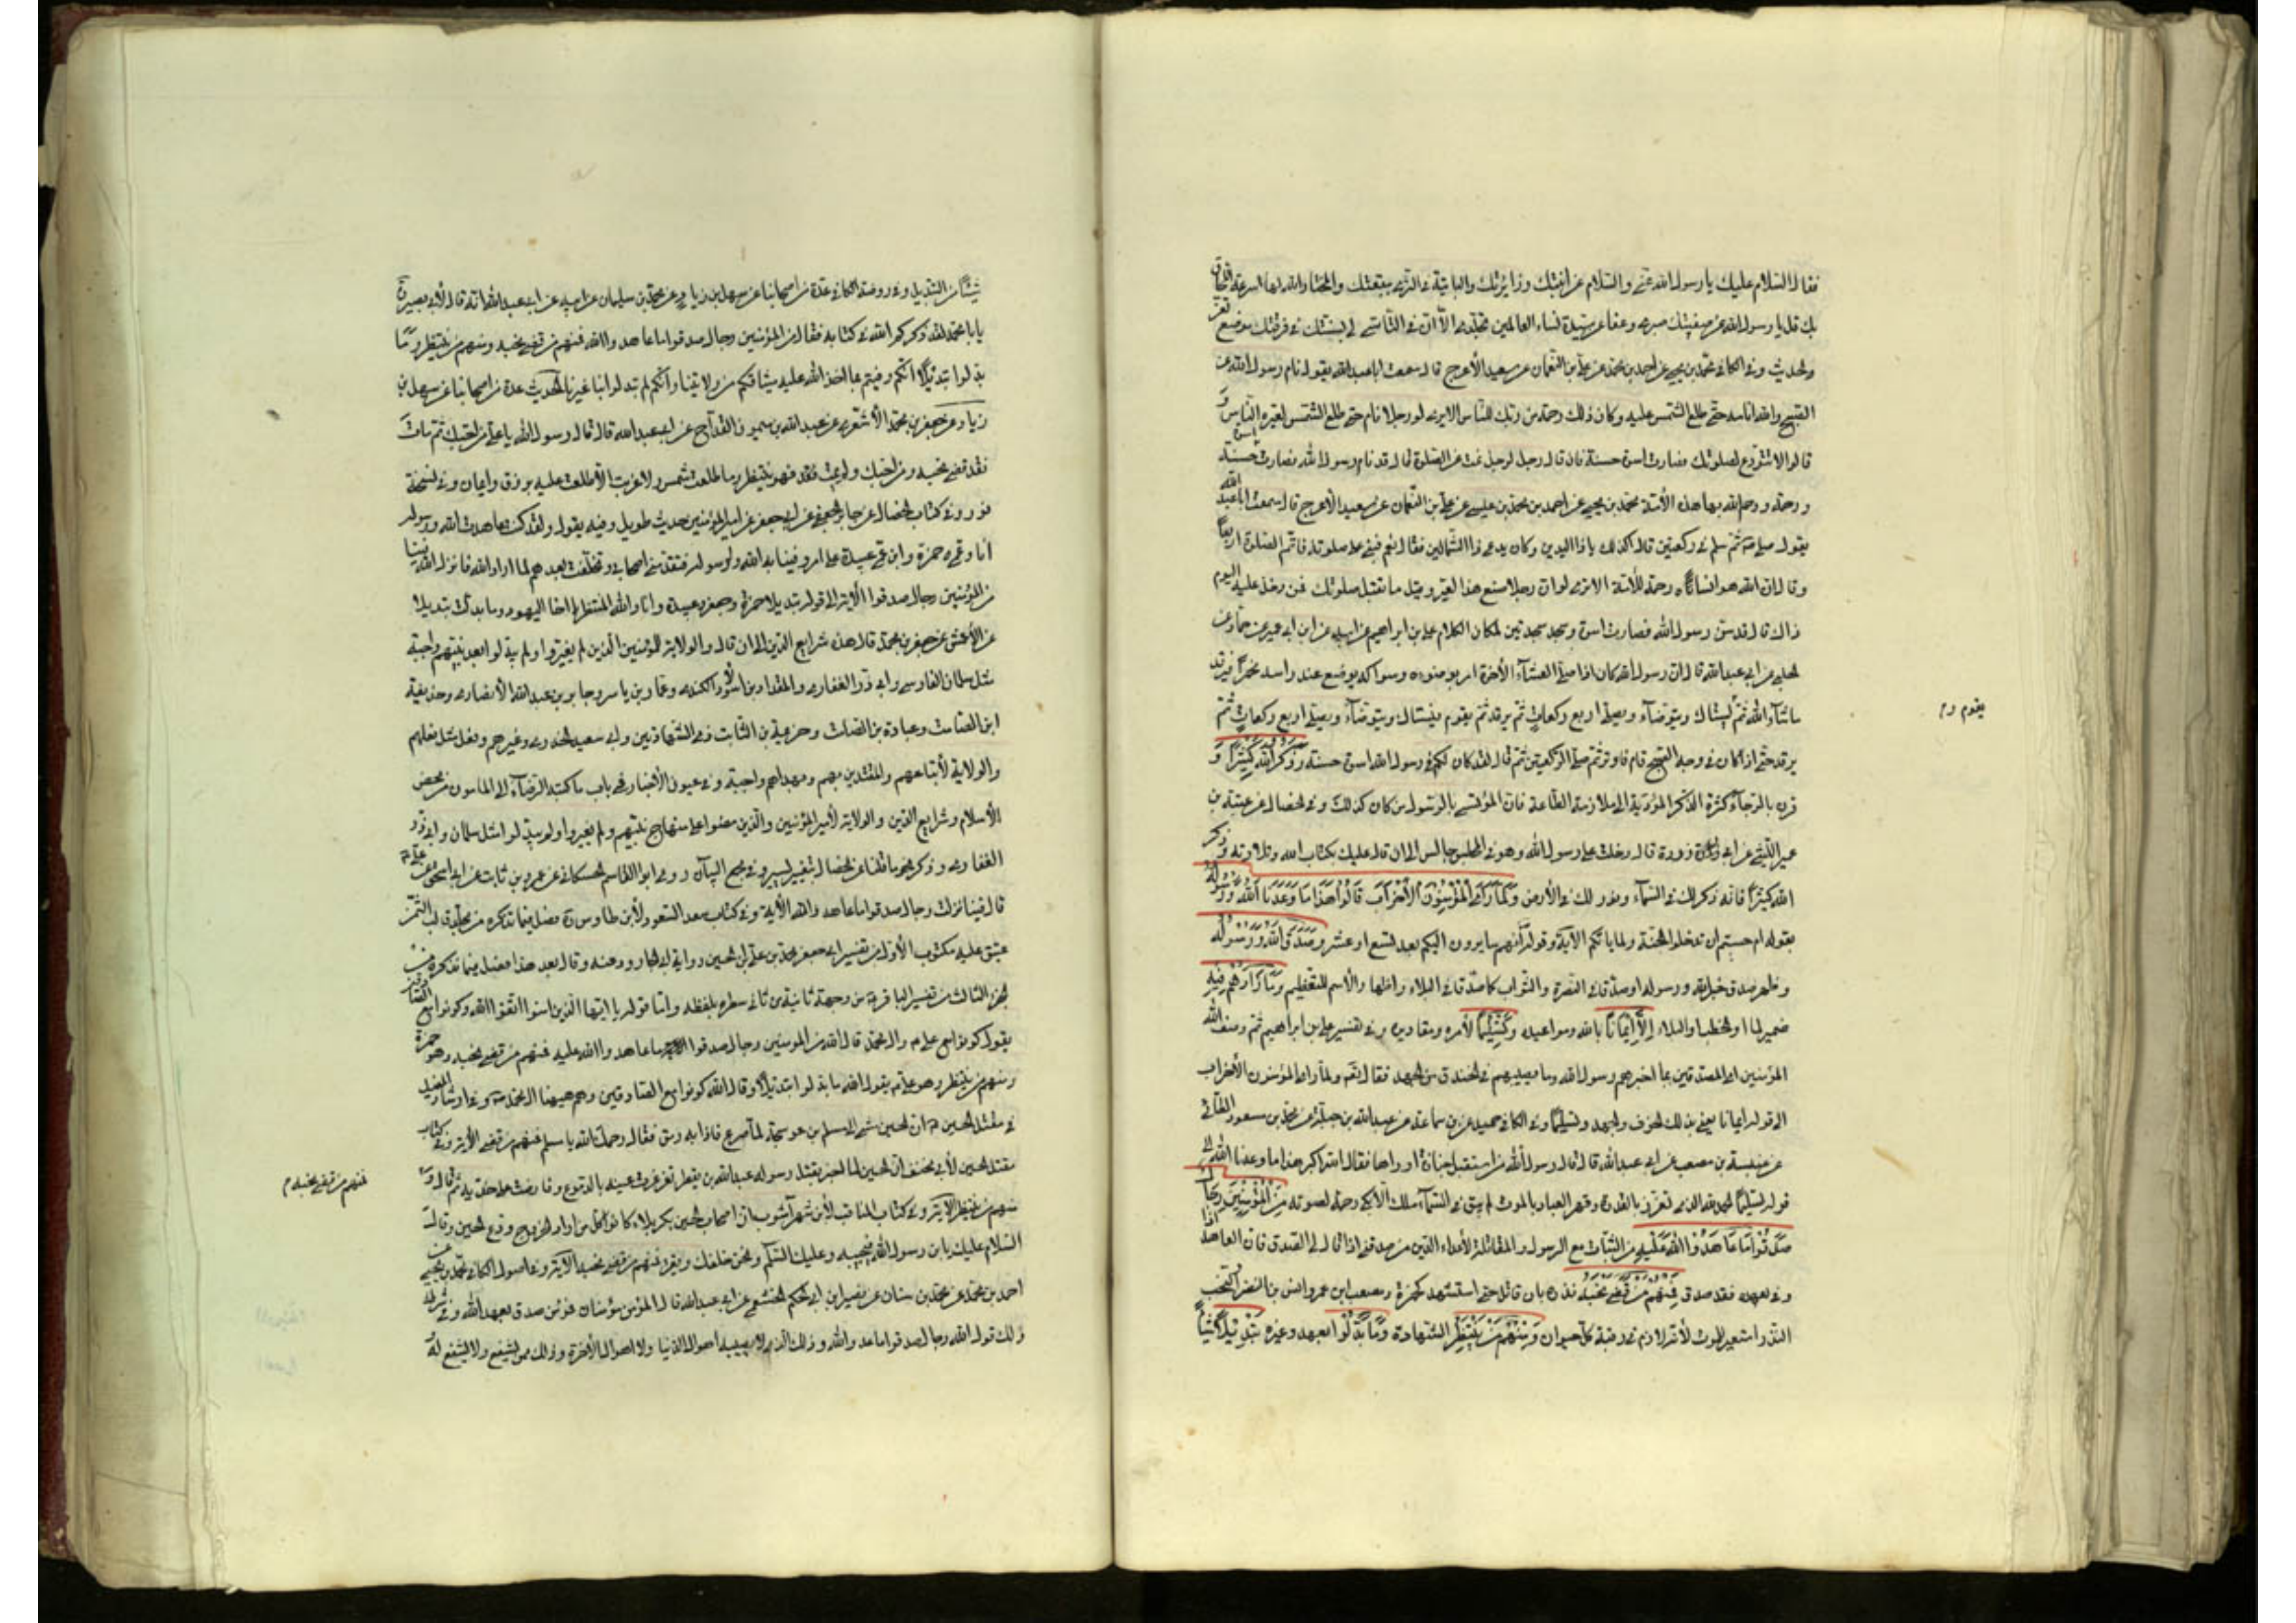 فقال السلام عليك يا رسول الله عني والسلام عن ابنتك وزائرتك والبائتة في الثرى ببقعتك والمختار الله لها سرعة اللحاق
بك قل يا رسول الله عن صفيتك صبري وعفا عن سيدة نساء العالمين تجلدي الا ان في التأسي لي بسنتك في فرقتك موضع تعز
والحديث وفي الكافي محمد بن يحيى عن احمد بن محمد عن علي بن النعمان عن سعيد الأعرج قال سمعت ابا عبد الله يقول نام رسول الله عن
الصبح والله انامه حتى طلع الشمس عليه وكان ذلك رحمة من ربك للناس الا ترى لو رجلا نام حتى طلع الشمس لعيره الناس و
قالوا لا تتورع لصلوتك فصارت اسوة حسنة فان قال رجل لرجل نمت عن الصلوة قال قد نام رسول الله فصارت اسوة حسنة
ورحمة ورحم الله بها هذه الأمة محمد بن يحيى عن احمد بن محمد بن عيسى عن علي بن النعمان عن سعيد الأعرج قال سمعت ابا عبد الله
يقول صلى ثم سلم في ركعتين قال اكذلك يا ذا اليدين وكان يدعى ذا الشمالين فقال نعم فبنى على صلوته فاتم الصلوة اربعا
وقال ان الله هو انساه رحمة للأمة الا ترى لو ان رجلا صنع هذا لعير وقيل ما تقبل صلوتك فمن دخل عليه اليوم
ذاك قال قد سن رسول الله فصارت اسوة وسجد سجدتين لمكان الكلام علي بن ابراهيم عن ابيه عن ابن ابي عمير عن حماد عن
الحلبي عن ابي عبد الله قال ان رسول الله كان اذا صلى العشاء الآخرة امر بوضوئه وسواكه يوضع عند راسه مخمرا فيرقد
ما شاء الله ثم يستاك ويتوضأ ويصلي اربع ركعات ثم يرقد ثم يقوم فيستاك ويتوضأ ويصلي اربع ركعات ثم
يقوم
يرقد حتى اذا كان في وجه الصبح قام فاوتر ثم صلى الركعتين ثم قال لقد كان لكم في رسول الله اسوة حسنة وَذَكَرَ اللّٰهَ كَثِيرًا و
قرن بالرجاء كثرة الذكر المؤدية الى ملازمة الطاعة فان المؤتسي بالرسول من كان كذلك وفي الخصال عن عتبة بن
عمير الليثي عن ابي ذر قال دخلت على رسول الله وهو في المجلس جالس الى ان قال عليك بكتاب الله وتلاوته وذكر
الله كثيرا فانه ذكر لك في السماء ونور لك في الأرض وَلَمَّا رَأَى الْمُؤْمِنُونَ الْأَحْزَابَ قَالُوا هَذَا مَا وَعَدَنَا اللّٰهُ وَرَسُولُهُ
بقوله ام حسبتم ان تدخلوا الجنة ولما ياتكم الآية وقوله انهم سايرون اليكم بعد تسع او عشر وَصَدَقَ اللّٰهُ وَرَسُولُهُ
وظهر صدق خبر الله ورسوله او صدقا في النصرة والثواب كما صدقا في البلاء واظهار الأسم للتعظيم وَمَا زَادَهُمْ فيه
ضمير لما راوا والخطب او البلاء إِلَّا إِيمَانًا بالله ومواعيده وَتَسْلِيمًا لأمره ومقاديره وفي تفسير علي بن ابراهيم ثم وصف الله
المؤمنين اي المصدقين بما اخبرهم رسول الله وما يصيبهم في الخندق من الجهد فقال ولما راى المؤمنون الأحزاب
الى قوله ايمانا يعني بذلك الخوف والجهد وتسليما وفي الكافي حميد عن بن سماعة عن عبد الله بن جبلة عن محمد بن مسعود الطائي
عن عنبسة بن مصعب عن ابي عبد الله قال قال رسول الله من استقبل جنازة او راها فقال الله اكبر هذا ما وعدنا الله الى
قوله تسليما الحمد لله الذي تعزز بالقدرة وقهر العباد بالموت لم يبق في السماء ملك الا بكى رحمة لصوته مِنَ الْمُؤْمِنِينَ رِجَالٌ
صَدَقُوا مَا عَاهَدُوا اللّٰهَ عَلَيْهِ من الثبات مع الرسول والمقاتلة لأعداء الدين من صدقني اذا قال لي الصدق فان العاهد اذا
وفى بعهده فقد صدق فَمِنْهُمْ مَنْ قَضَى نَحْبَهُ نذره بان قاتل حتى استشهد كحمزة ومصعب بن عمير وانس بن النضر والنحب
النذر استعير للموت لأنه لازم في رقبة كل حيوان وَمِنْهُمْ مَنْ يَنْتَظِرُ الشهادة وَمَا بَدَّلُوا العهد وغيره تَبْدِيلًا شيئا
شيئا من التبديل وفي روضة الكافي عدة من اصحابنا عن سهل بن زياد عن محمد بن سليمان عن ابيه عن ابي عبد الله انه قال لأبي بصير
يا با محمد لقد ذكركم الله في كتابه فقال من المؤمنين رجال صدقوا ما عاهدوا الله فمنهم من قضى نحبه ومنهم من ينتظر وما
بدلوا تبديلا انكم وفيتم بما اخذ الله عليه ميثاقكم من ولايتنا وانكم لم تبدلوا بنا غيرنا الحديث عدة من اصحابنا عن سهل بن
زياد عن جعفر بن محمد الأشعري عن عبد الله بن ميمون القداح عن ابي عبد الله قال قال رسول الله يا علي من احبك ثم مات
فقد قضى نحبه ومن احبك ولم يمت فقد فهو ينتظر وما طلعت شمس ولا غربت الا طلعت عليه برزق وايمان وفي نسخة
نور وفي كتاب الخصال عن جابر الجعفي عن ابي جعفر عن امير المؤمنين حديث طويل وفيه يقول ولقد كنت عاهدت الله ورسوله
انا وعمي حمزة وابن عمي عبيدة على امر وفينا به الله ولرسوله فتقدمني اصحابي وتخلفت بعدهم لما اراد الله فانزل الله فينا
من المؤمنين رجال صدقوا الآية الى قوله تبديلا حمزة وجعفر وعبيدة وانا والله المنتظر يا اخا اليهود وما بدلت تبديلا
عن الأعمش عن جعفر بن محمد قال هذه شرايع الدين الى ان قال والولاية للمؤمنين الذين لم يغيروا ولم يبدلوا بعد نبيهم واجبة
مثل سلمان الفارسي وابي ذر الغفاري والمقداد بن اسود الكندي وعمار بن ياسر وجابر بن عبد الله الأنصاري وحذيفة
ابن الصامت وعبادة بن الصلت وحزيمة بن الثابت ذي الشهادتين وابي سعيد الخدري وغيرهم وفعل مثل فعلهم
والولاية لأتباعهم والمقتدين بهم وبهداهم واجبة وفي عيون الأخبار في باب ما كتبه الرضا الى المأمون من محض
الأسلام وشرايع الدين والولاية لأمير المؤمنين والذين مضوا على منهاج نبيهم ولم يغيروا ولم يبدلوا مثل سلمان وابي ذر
الغفاري وذكر نحو ما نقلنا عن الخصال بتغيير يسير وفي مجمع البيان روى ابو القاسم الحسكاني عن عمرو بن ثابت عن ابي اسحق عن علي
قال فينا نزلت رجال صدقوا ما عاهدوا الله الآية وفي كتاب سعد السعود لأبن طاوس فصل فيما نذكره من مجلد قالب الثمن
عتيق عليه مكتوب الأول من تفسير ابي جعفر محمد بن علي بن الحسين رواية ابي الجارود عنه وقال بعد هذا فصل فيما نذكره من
الجزء الثالث من تفسير الباقر من وجهة ثانية من ثاني سطره بلفظه واما قوله يا ايها الذين امنوا اتقوا الله وكونوا مع الصادقين
يقول كونوا مع علي وال محمد قال الله من المؤمنين رجال صدقوا ما عاهدوا الله عليه فمنهم من قضى نحبه وهو حمزة
ومنهم من ينتظر وهو علي يقول الله ما بدلوا تبديلا وقال الله كونوا مع الصادقين وهم هيهنا ال محمد وفي ارشاد المفيد
في مقتل الحسين ان الحسين مشى الى مسلم بن عوسجة لما صرع فاذا به رمق فقال رحمك الله يا مسلم فمنهم من قضى الآية وفي كتاب
مقتل الحسين لأبي مخنف ان الحسين لما اخبر بقتل رسوله عبد الله بن يقطر تغرغرت عينه بالدموع وفاضت على خديه ثم قال و
فمنهم من قضى نحبه
منهم من ينتظر الآية وفي كتاب المناقب لأبن شهر آشوب ان اصحاب الحسين بكربلاء كانوا كل من اراد الخروج ودع الحسين وقال
السلام عليك يا بن رسول الله فيجيبه وعليك السلام ونحن خلفك ويقرء فمنهم من قضى نحبه الآية وفي اصول الكافي محمد بن يحيى عن
احمد بن محمد عن محمد بن سنان عن نصير ابن ابي الحكم الخثعمي عن ابي عبد الله قال المؤمن مؤمنان فمؤمن صدق بعهد الله وفى بشرطه
ذلك قول الله رجال صدقوا ما عاهدوا الله وذلك الذي لا يصيبه اهوال الدنيا ولا اهوال الآخرة وذلك ممن يشفع ولا يشفع له